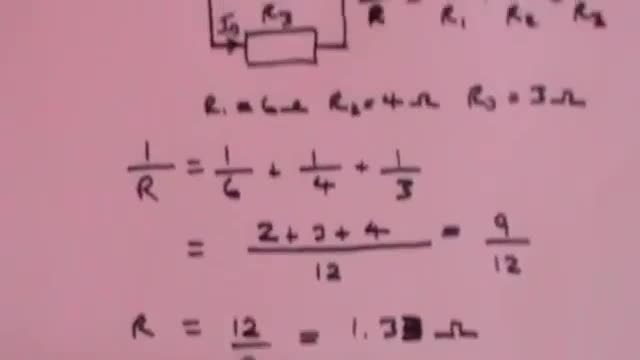 I₃ R₃
R R₁ R₂ R₃
R₁ = 6 Ω R₂ = 4 Ω R₃ = 3 Ω
1/R = 1/6 + 1/4 + 1/3
= (2 + 3 + 4)/12 = 9/12
R = 12/ = 1.3 Ω